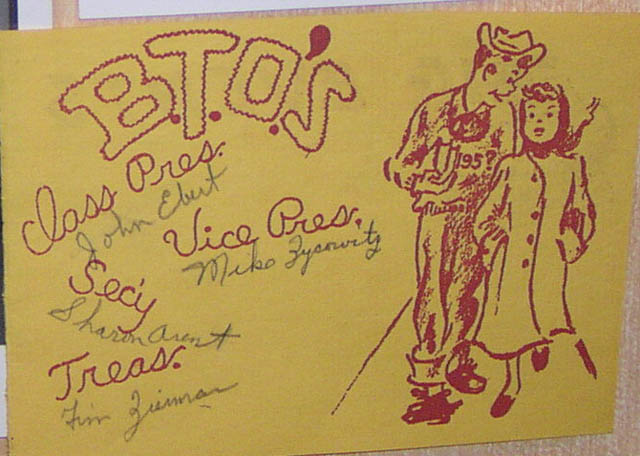 B.T.O'S
Class Pres.
John Ebert
Vice Pres.
Mike Zysowitz
Sec'y
Sharon Arent
Treas.
195